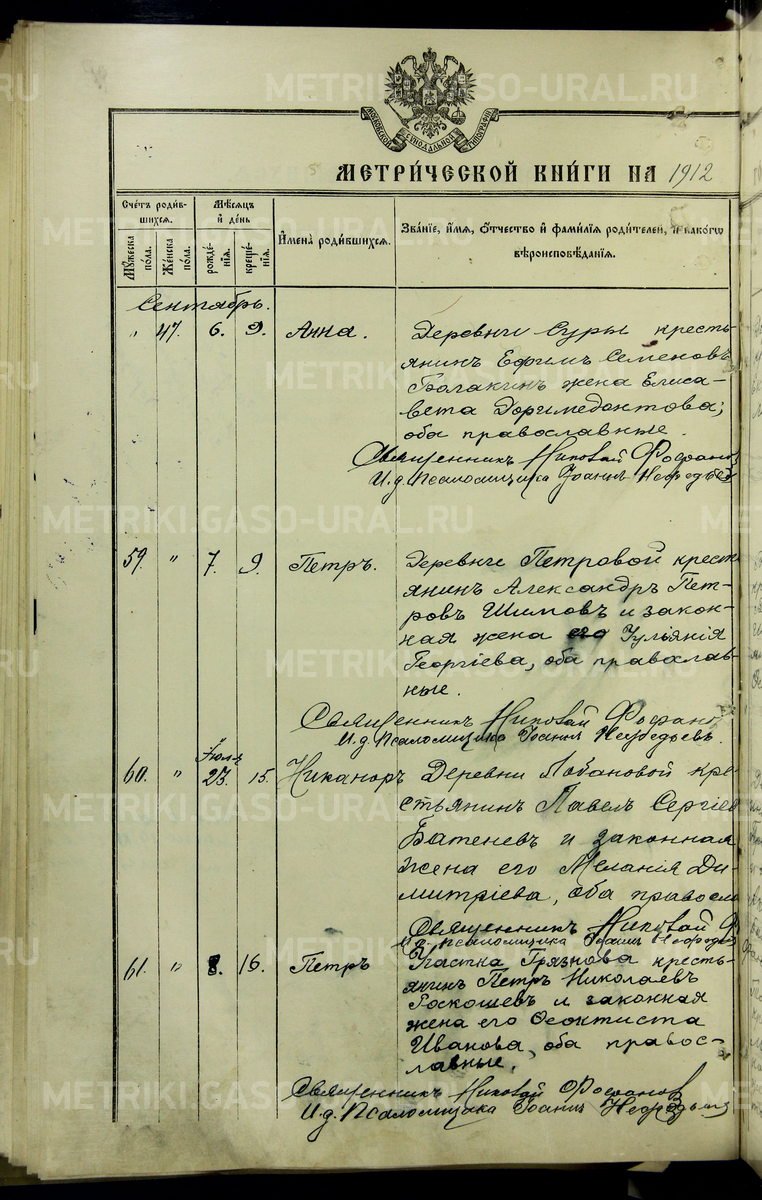 METRIKI.GASO-URAL.RU
МОСКОВСКОЙ СѴНОДАЛЬНОЙ ТИПОГРАФІИ
МЕТРИ́ЧЕСКОЙ КНИ́ГИ НА 1912
Сче́тъ роди́в-шихся.
Мꙋ́жеска по́ла.
Же́нска по́ла.
Мѣ́сяцъ и҆ де́нь
рожде́-нїѧ.
креще́-нїѧ.
И҆мена̀ роди́вшихсѧ.
Зва́нїе, и҆́мѧ, ѻ҆́тчество и҆ фами́лїѧ роди́телей, и҆ како́гѡ
вѣроисповѣ́данїѧ.
Сентябрь.
" 47. 6. 9. Анна. Деревни Суры кресть-
янинъ Ефимъ Семеновъ
жена Елиса-
вета
оба православные.
Священникъ Николай
И.д. Псаломщика Іоаннъ
59. " 7. 9. Петръ. Деревни Петровой крест
янинъ Александръ Пет-
ровъ Шимовъ и закон-
ная жена его Іуліянія
Георгіева, оба православ-
ные.
Священникъ Николай
И.д. Псаломщика Іоаннъ
Іюля
60. " 23. 15. Никаноръ Деревни Лобановой кре-
стьянинъ Павелъ Сергіев
Батеневъ и законная
жена его Меланія Ди-
митріева, оба правосла
Священникъ Николай
И.д. Псаломщика Іоаннъ
61. " 8. 16. Петръ Участка Грязнова кресть-
янинъ Петръ Николаевъ
и законная
жена его Ѳеоктиста
Иванова, оба правос-
лавные.
Священникъ Николай
И.д. Псаломщика Іоаннъ